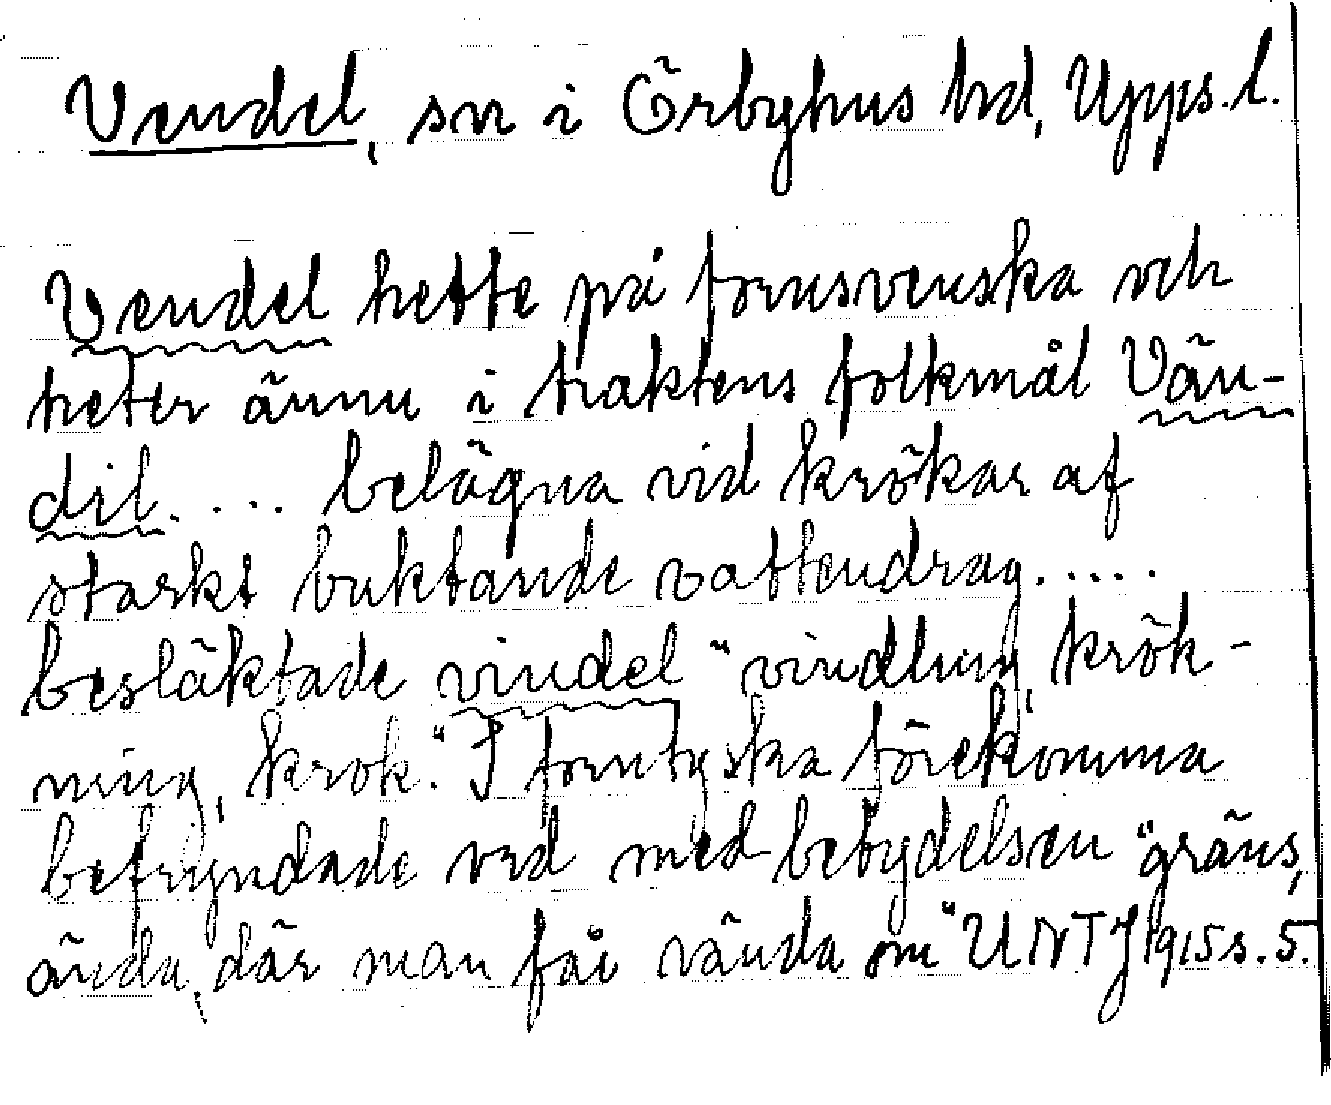 Vendel, sn i Örbyhus hd, Upps. l.
Vendel hette på fornsvenska och
heter ännu i traktens folkmål Vän-
dil. . . . belägna vid krökar af
starkt buktande vattendrag. . . . .
besläktade vindel "vindlung, krök-
ning, krok." I forntyska förekomma
befryndade ord med betydelsen "gräns,
ända, där man får vända om" UNTJ 1915 s. 5.